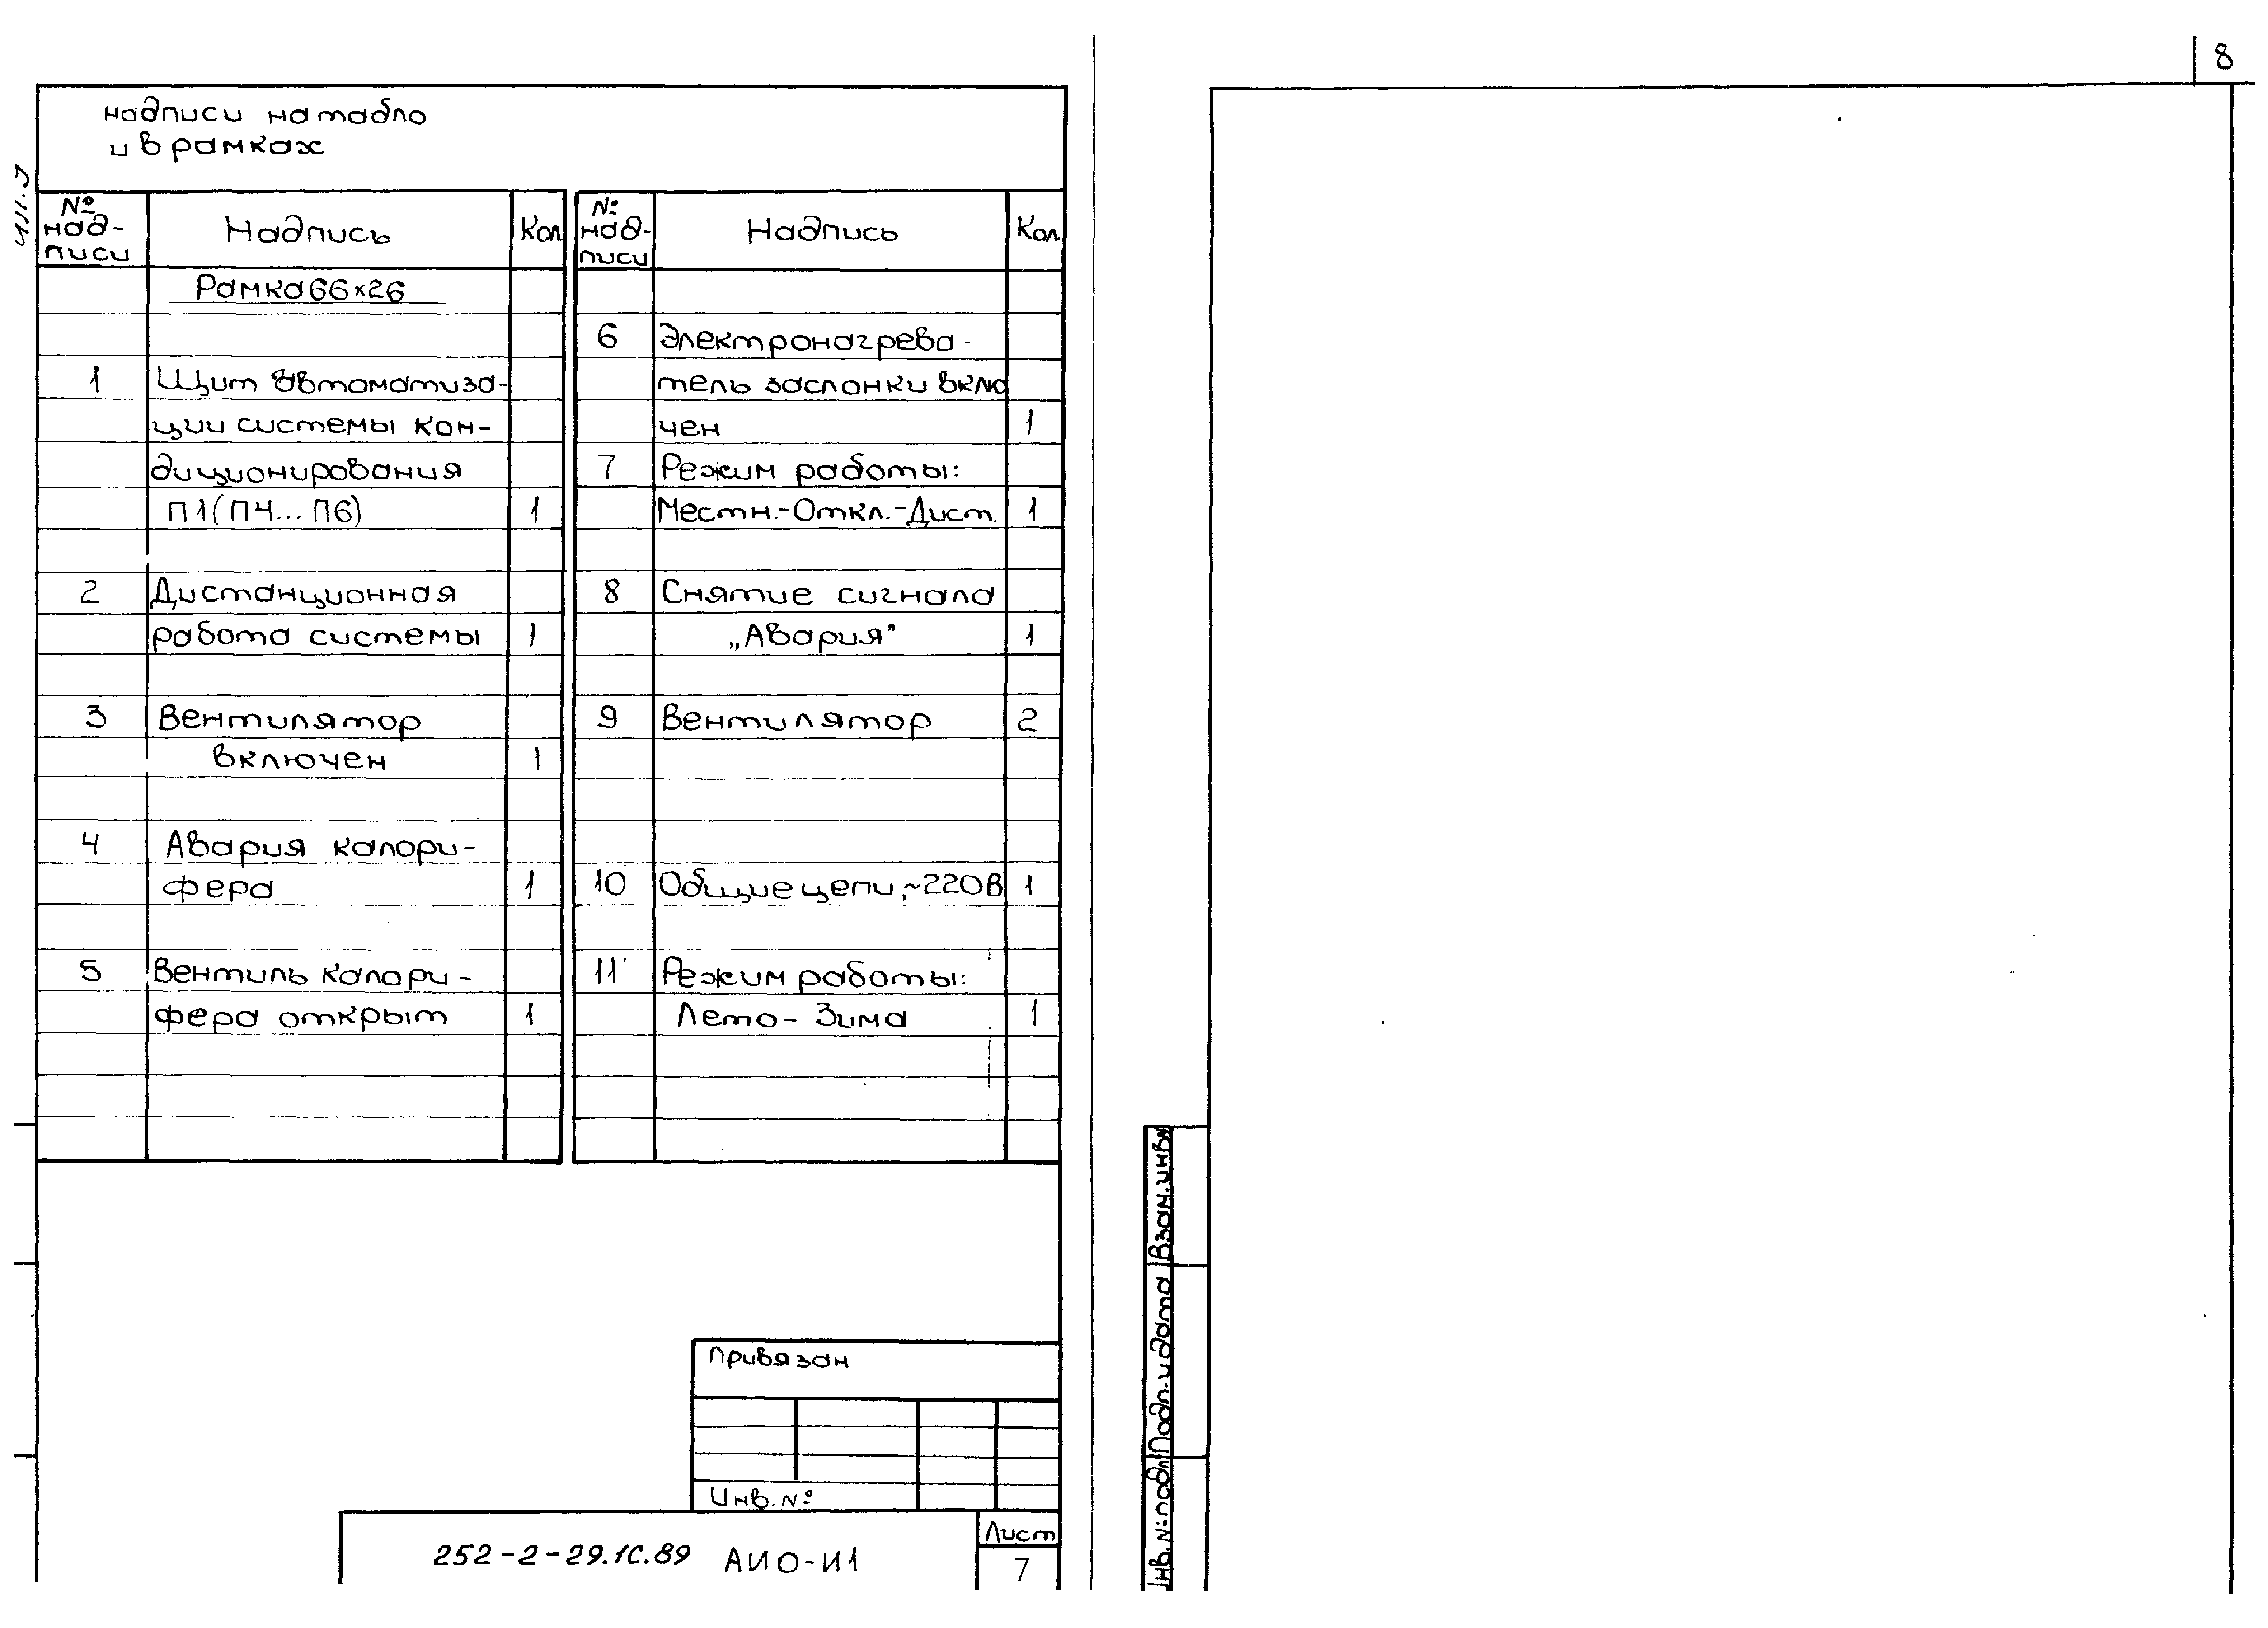 8
надписи на табло
и в рамках
№
над-
писи
Надпись
Кол
Рамка 66×26
1 Щит автоматиза-
ции системы кон-
диционирования
П1(П4...П6) 1
2 Дистанционная
работа системы 1
3 Вентилятор
включен 1
4 Авария калори-
фера 1
5 Вентиль калори-
фера открыт 1
№
над-
писи
Надпись
Кол
6 Электронагрева-
тель заслонки вклю
чен 1
7 Режим работы:
Местн.-Откл.-Дист. 1
8 Снятие сигнала
„Авария" 1
9 Вентилятор 2
10 Общие цепи, ~220В 1
11 Режим работы:
Лето - Зима 1
Привязан
Инв. №
252-2-29.1С.89 АИО-И1
Лист
7
Взам. инв №
Подп. и дата
Инв. № подл